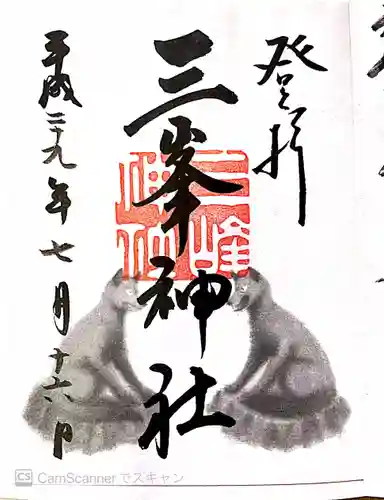 登拝
三峯神社
三峰神社
平成二十九年七月十六日
CS CamScanner でスキャン